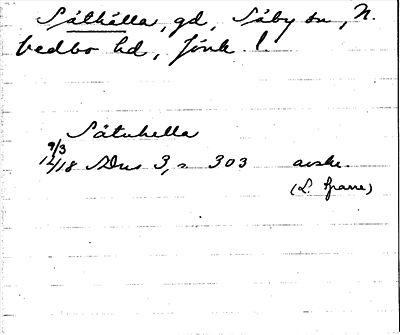 Såthälla, gd, Säby sn, N.
Vedbo hd, Jönk. l.
Såtuhella
9/3
12/18 ADns 3, s 303 avskr.
(L. Sparre)